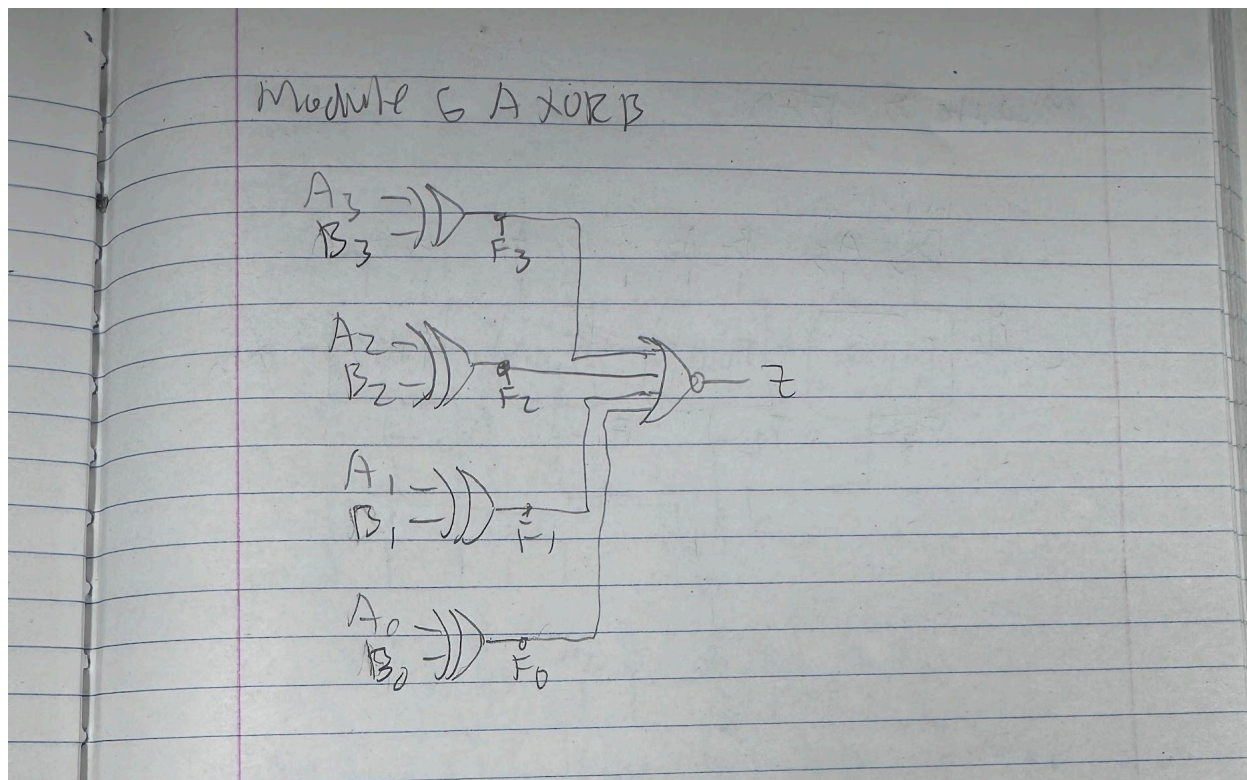 Module 6 A XOR B
A3
B3
F3
A2
B2
F2
Z
A1
B1
F1
A0
B0
F0